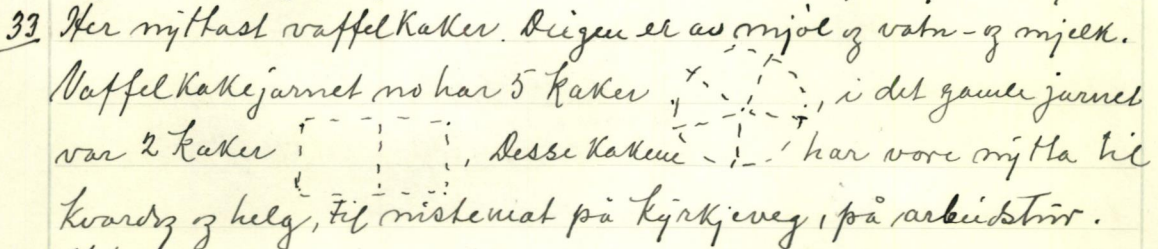 33 Her nyttast vaffelkaker. Deigen er av mjøl og vatn - og mjelk.
Vaffelkakejarnet no har 5 kaker , i det gamle jarnet
var 2 kaker , Desse kakene har vore nytta til
kvardag og helg, til nistemat på kyrkjeveg, på arbeidstur.